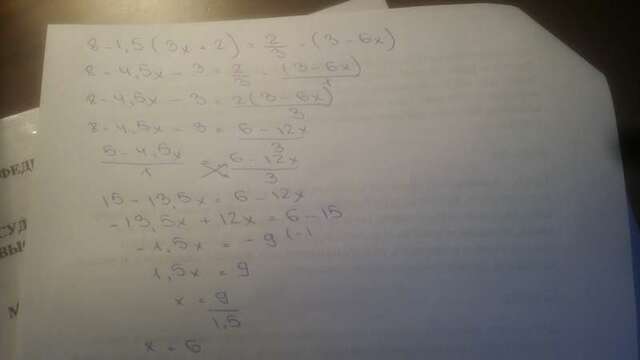 8 - 1,5(3x + 2) = 2/3 · (3 - 6x)
8 - 4,5x - 3 = 2/3 · (3 - 6x)/1
8 - 4,5x - 3 = 2(3 - 6x)/3
8 - 4,5x - 3 = 6 - 12x/3
5 - 4,5x/1 = 6 - 12x/3
15 - 13,5x = 6 - 12x
-13,5x + 12x = 6 - 15
-1,5x = -9 |(-1
1,5x = 9
x = 9/1,5
x = 6
ФЕД
СУД
ВЫ
М